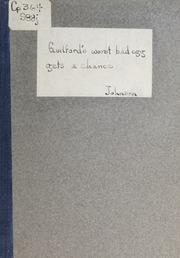 Cp364
S88j
Guilford's worst bad egg
gets a chance
Johnson